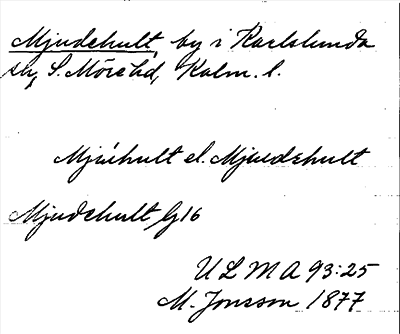 Mjudehult, by i Karlslunda
sn, S. Möre hd, Kalm. l.
Mjúhult el. Mjudehult
Mjudehult Gj6
ULMA 93:25
M. Jonsson 1877